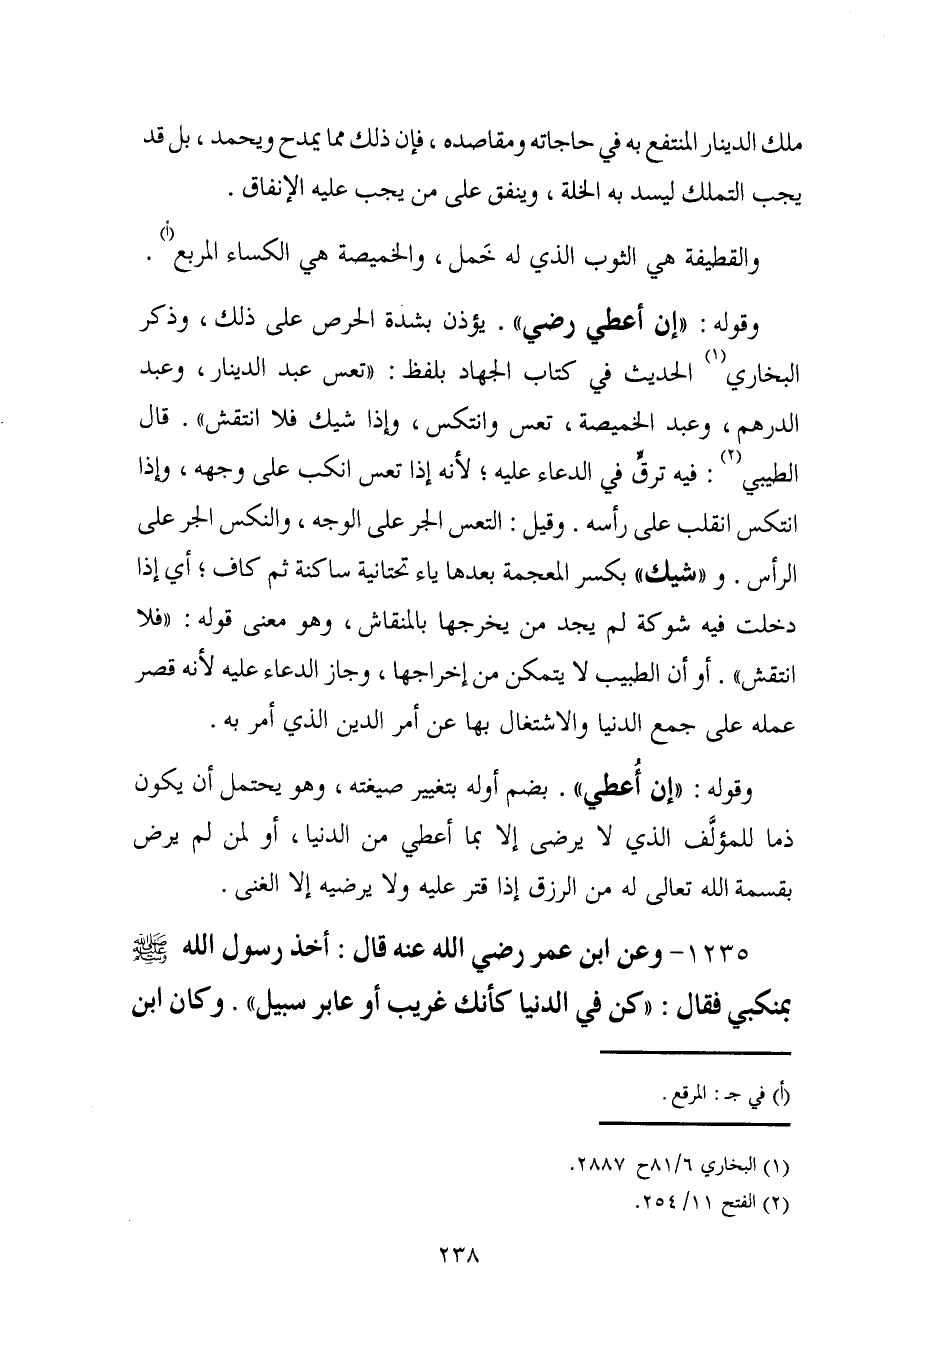 ملك الدينار المنتفع به في حاجاته ومقاصده ، فإن ذلك مما يمدح ويحمد ، بل قد
يجب التملك ليسد به الخلة ، وينفق على من يجب عليه الإنفاق .
والقطيفة هي الثوب الذي له خَمل ، والخميصة هي الكساء المربع(أ) .
وقوله : «إن أعطي رضي» . يؤذن بشدة الحرص على ذلك ، وذكر
البخاري(١) الحديث في كتاب الجهاد بلفظ : «تعس عبد الدينار ، وعبد
الدرهم ، وعبد الخميصة ، تعس وانتكس ، وإذا شيك فلا انتقش» . قال
الطيبي(٢) : فيه ترقٍّ في الدعاء عليه ؛ لأنه إذا تعس انكب على وجهه ، وإذا
انتكس انقلب على رأسه . وقيل : التعس الجر على الوجه ، والنكس الجر على
الرأس . و «شيك» بكسر المعجمة بعدها ياء تحتانية ساكنة ثم كاف ؛ أي إذا
دخلت فيه شوكة لم يجد من يخرجها بالمنقاش ، وهو معنى قوله : «فلا
انتقش» . أو أن الطبيب لا يتمكن من إخراجها ، وجاز الدعاء عليه لأنه قصر
عمله على جمع الدنيا والاشتغال بها عن أمر الدين الذي أمر به .
وقوله : «إن أُعطي» . بضم أوله بتغيير صيغته ، وهو يحتمل أن يكون
ذما للمؤلَّف الذي لا يرضى إلا بما أعطي من الدنيا ، أو لمن لم يرض
بقسمة الله تعالى له من الرزق إذا قتر عليه ولا يرضيه إلا الغنى .
١٢٣٥- وعن ابن عمر رضي الله عنه قال : أخذ رسول الله ﷺ
بمنكبي فقال : «كن في الدنيا كأنك غريب أو عابر سبيل» . وكان ابن
(أ) في جـ : المرقع .
(١) البخاري ٦/٨١ح ٢٨٨٧.
(٢) الفتح ١١/ ٢٥٤.
٢٣٨